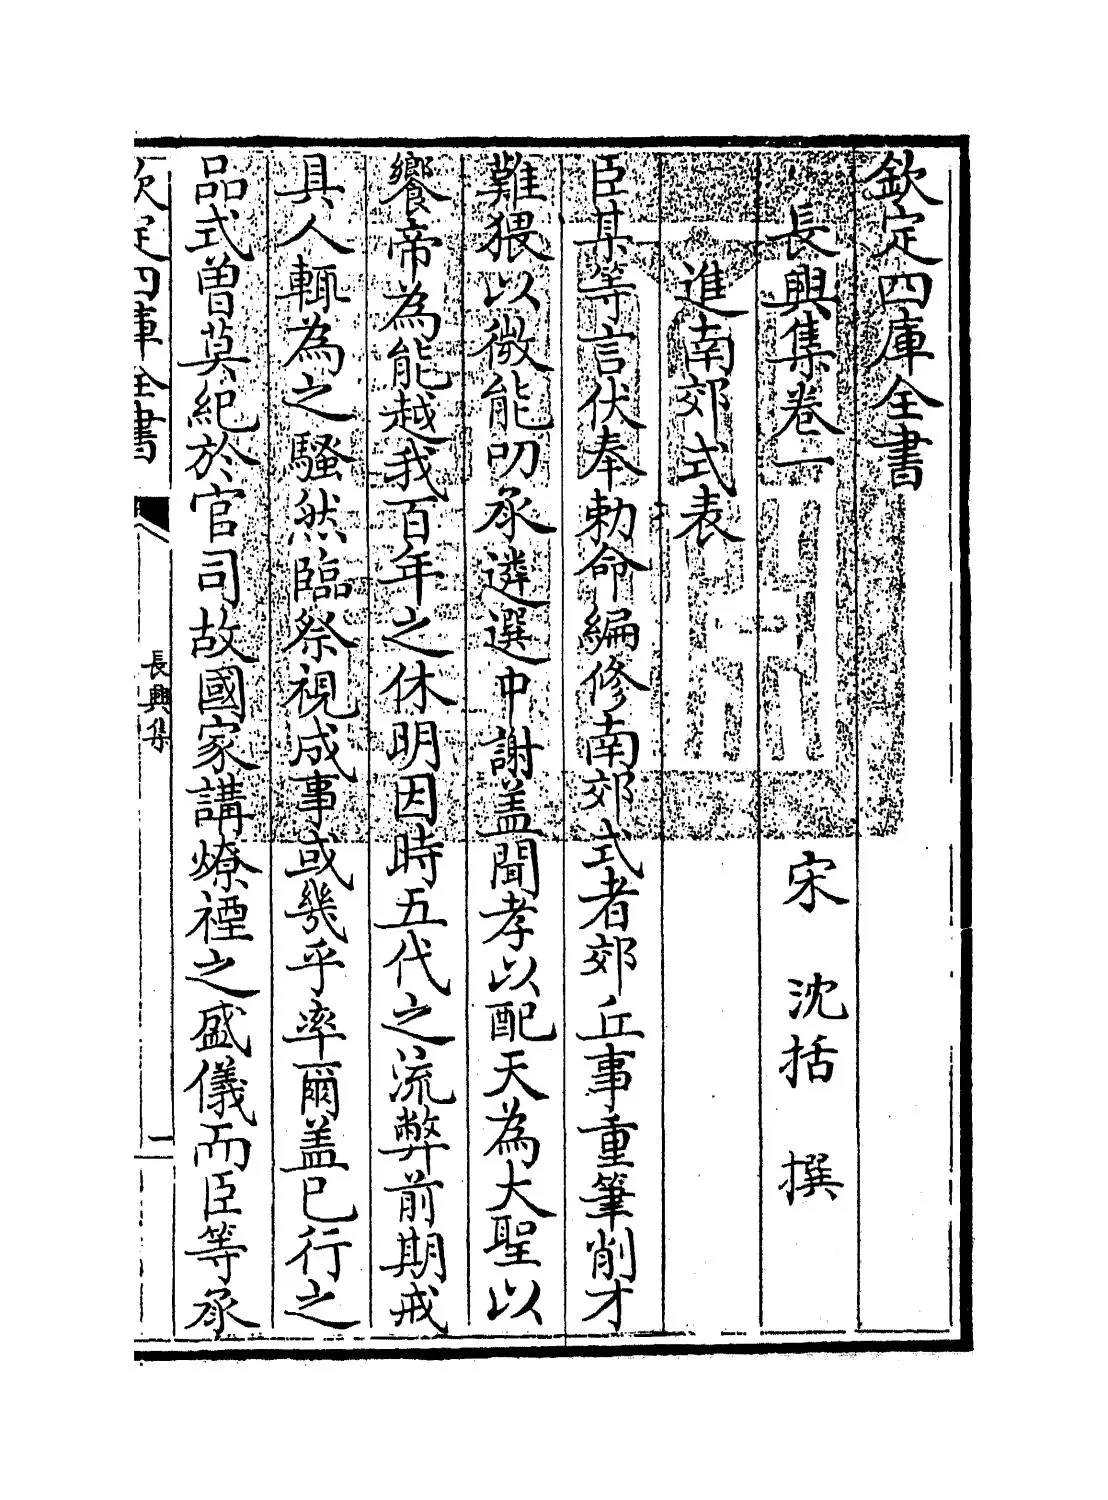 欽定四庫全書
長興集卷一
宋 沈括 撰
進南郊式表
臣某等言伏奉勅命編修南郊式者郊丘事重筆削才
難猥以微能叨承遴選中謝盖聞孝以配天為大聖以
饗帝為能越我百年之休明因時五代之流弊前期戒
具人輒為之騷然臨祭視成事或幾乎率爾盖已行之
品式曽莫紀於官司故國家講燎禋之盛儀而臣等承
欽定四庫全書
長興集